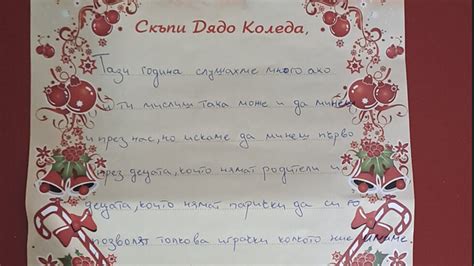 Скъпи Дядо Коледа,
Тази година слушахме много ако
и ти мислиш така може и да минеш
и през нас, но искаме да минеш първо
през децата, които нямат родители и
децата, които нямат парички да си
позволят толкова играчки колкото ние имаме.